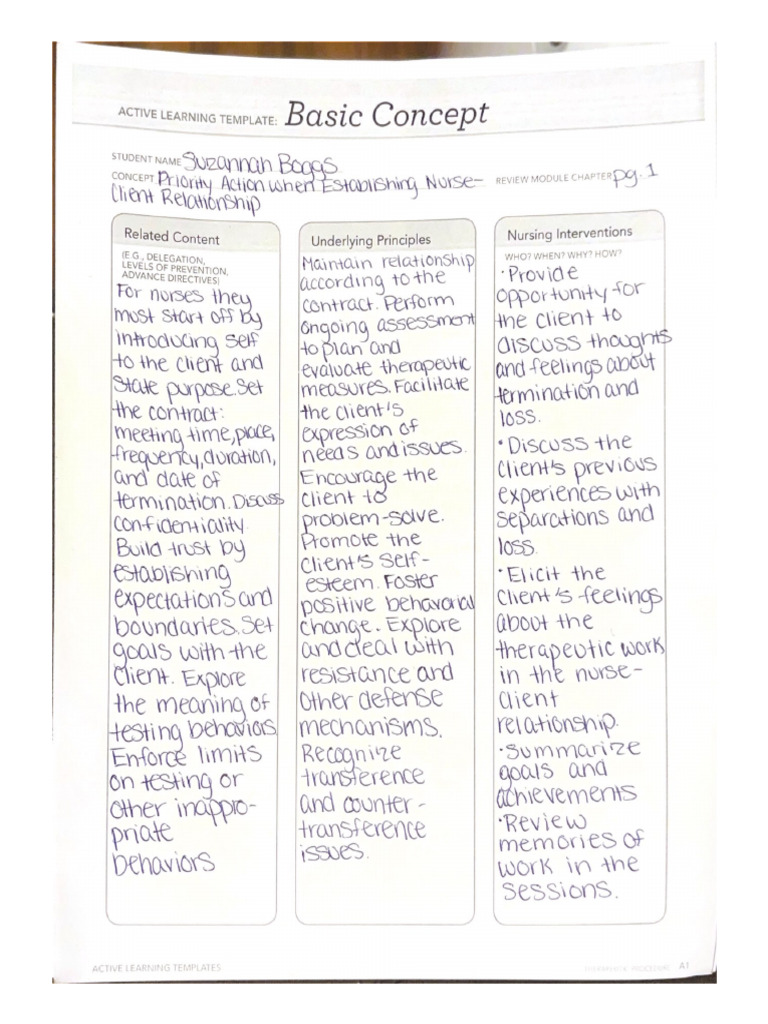 ACTIVE LEARNING TEMPLATE: Basic Concept
STUDENT NAME Suzannah Boggs
CONCEPT Priority Action when Establishing Nurse-
Client Relationship
REVIEW MODULE CHAPTER pg. 1
Related Content
(E.G., DELEGATION,
LEVELS OF PREVENTION,
ADVANCE DIRECTIVES)
For nurses they
must start off by
introducing self
to the client and
state purpose. Set
the contract:
meeting time, place,
frequency, duration,
and date of
termination. Discuss
confidentiality
Build trust by
establishing
expectations and
boundaries. Set
goals with the
client. Explore
the meaning of
testing behaviors
Enforce limits
on testing or
other inappro-
priate
behaviors
Underlying Principles
Maintain relationship
according to the
contract. Perform
ongoing assessment
to plan and
evaluate therapeutic
measures. Facilitate
the client's
expression of
needs and issues.
Encourage the
client to
problem-solve.
Promote the
client's self-
esteem. Foster
positive behavorial
change. Explore
and deal with
resistance and
other defense
mechanisms.
Recognize
transference
and counter-
transference
issues.
Nursing Interventions
WHO? WHEN? WHY? HOW?
•Provide
opportunity for
the client to
discuss thoughts
and feelings about
termination and
loss.
•Discuss the
client's previous
experiences with
separations and
loss.
•Elicit the
client's feelings
about the
therapeutic work
in the nurse-
client
relationship.
•Summarize
goals and
achievements
•Review
memories of
work in the
sessions.
ACTIVE LEARNING TEMPLATES
THERAPEUTIC PROCEDURE A1